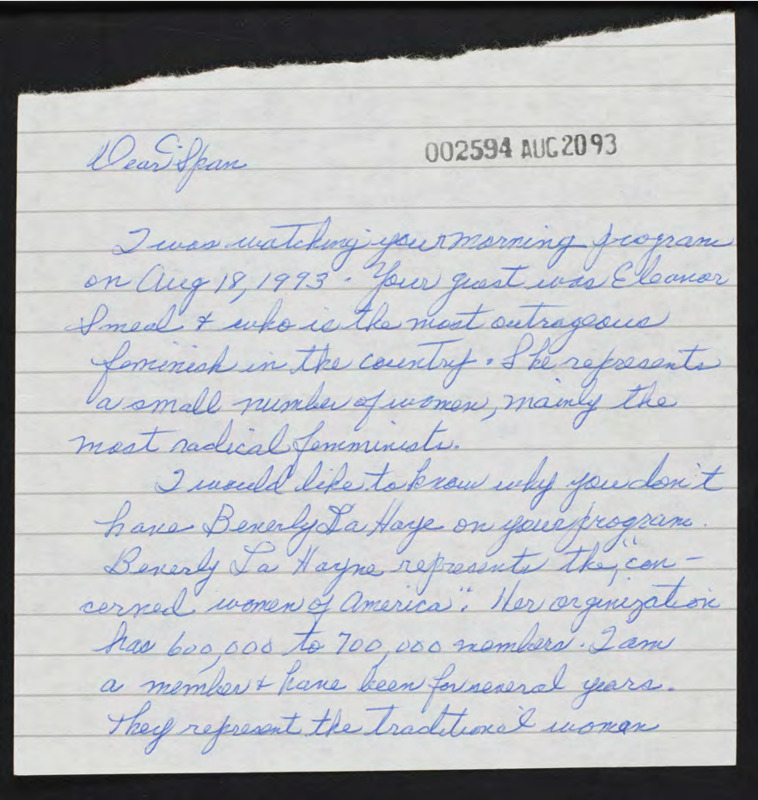 Dear Span
002594 AUG 20 93
I was watching your morning program
on Aug 18, 1993. Your guest was Eleanor
Smeal & who is the most outrageous
feminish in the country. She represents
a small number of women, mainly the
most radical femminists.
I would like to know why you don't
have Beverly La Haye on your program.
Beverly La Hayne represents the, "con-
cerned women of America". Her orginization
has 600,000 to 700,000 members. I am
a member & have been for several years.
They represent the traditional woman